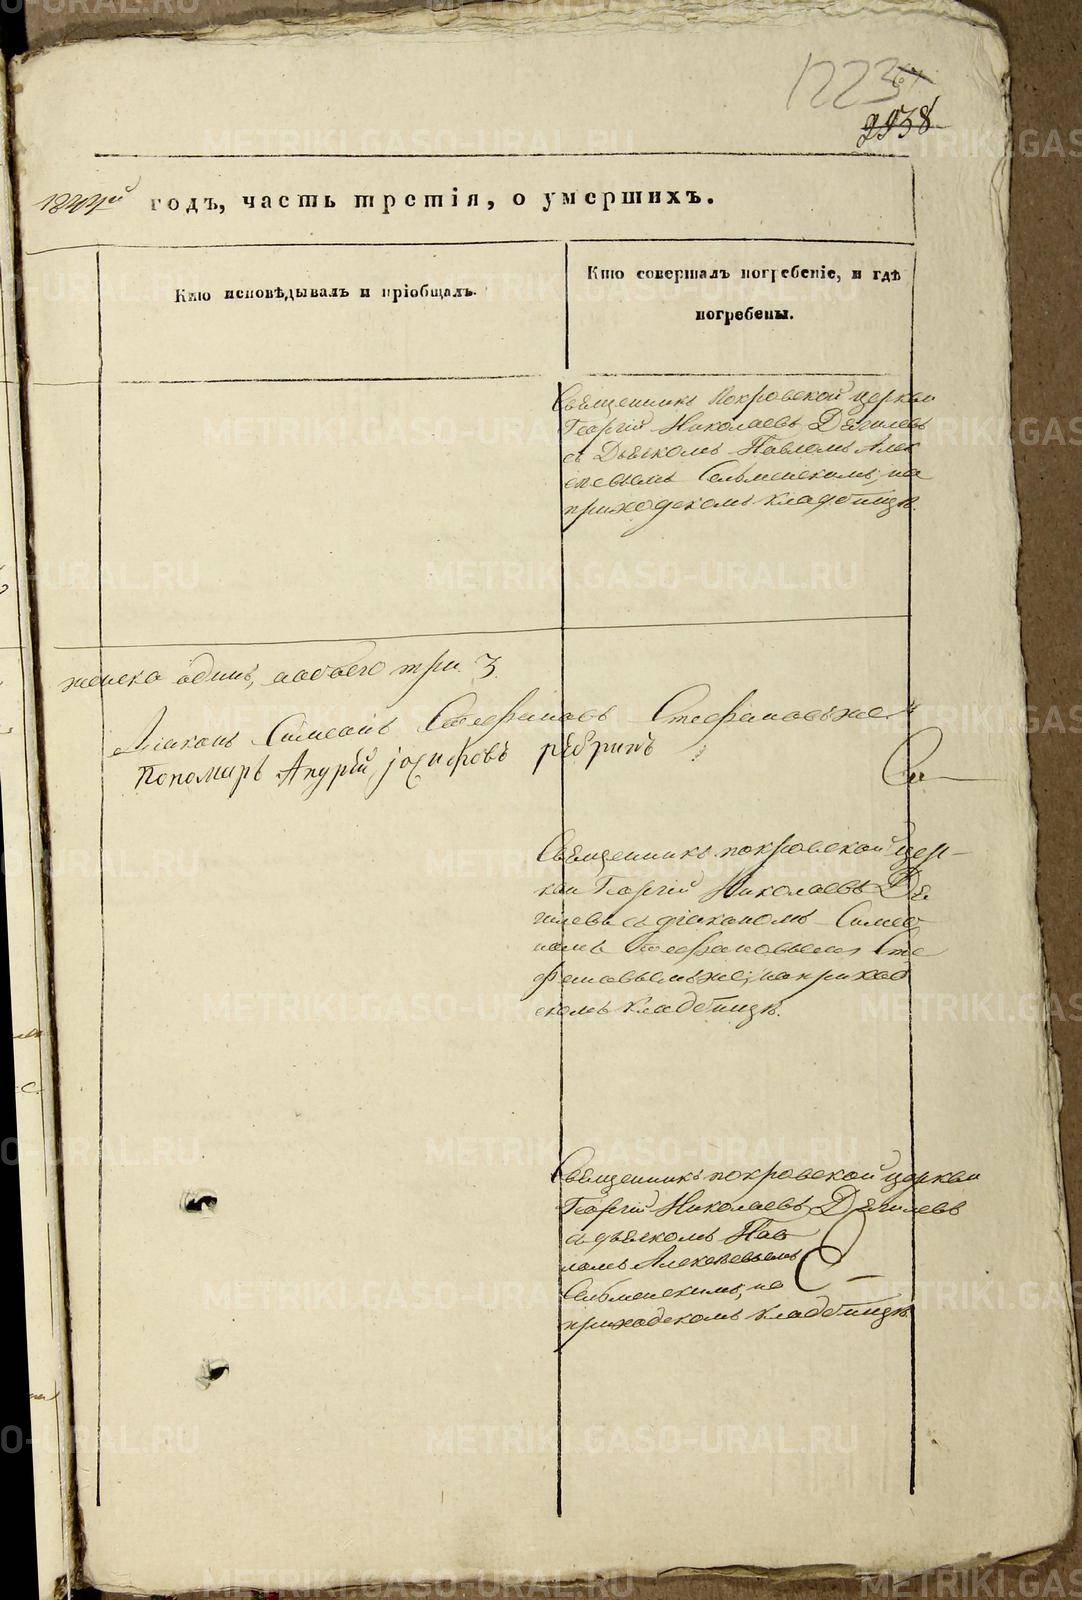 1223
2238
1844й годъ, часть третія, о умершихъ.
Кто исповѣдывалъ и пріобщалъ.
Кто совершалъ погребеніе, и гдѣ
погребены.
Священникъ Покровской церкви
Георгій Николаевъ Дягилевъ
съ Дьякомъ Павломъ Алек
сѣевымъ Сельменскимъ, на
приходскомъ кладбищѣ.
женска одинъ, а обоего три. 3.
Діаконъ Симеонъ Стефановъ Стефановъ же
Пономарь Андрей Іосифовъ
Священникъ покровской цер-
кви Георгій Николаевъ Дя
гилевъ съ діакономъ Симео
номъ Стефановымъ Сте
фановымъ же, на приход
скомъ кладбищѣ.
Священникъ покровской церкви
Георгій Николаевъ Дягилевъ
съ дьякомъ Пав
ломъ Алексѣевымъ
Сельменскимъ, на
приходскомъ кладбищѣ.
METRIKI.GASO-URAL.RU